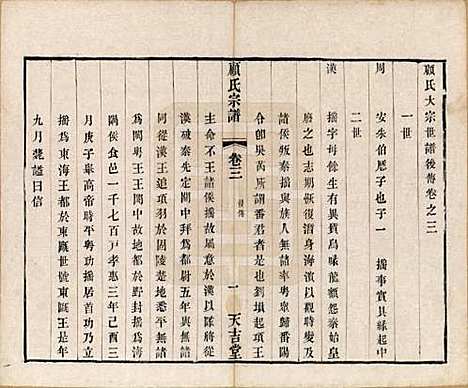 顧氏大宗世譜後傳卷之三
一世
周
安朱伯厖子也子一
搖事實具緣起中
漢
搖字毋餘生有異質鳥啄龍顏怨秦始皇
廢之也志期恢復潛身海濱以諸侯不及
諸侯叛秦搖與族人無諸率粤衆歸番陽
令卽吳芮所謂番君者是也劉項起項王
顧氏宗譜
卷三
後傳
一
天吉堂
主命不王諸侯搖故屬意於漢以隊將從
漢破秦先定關中拜為都尉五年與無諸
同從漢王追項羽於固陵楚地悉平無諸
為閩粤王王閩中故地都於野封搖
隅侯食邑一千七百戸孝惠三年己酉三
月庚子舉高帝時平粤功搖居首功乃立
搖為東海王都於東甌世號東甌王是年
九月薨諡曰信